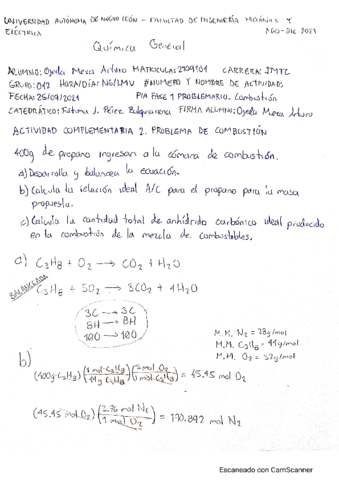 UNIVERSIDAD AUTÓNOMA DE NUEVO LEÓN - FACULTAD DE INGENIERÍA MECÁNICA Y
ELÉCTRICA AGO-DIC 2021
Química General
ALUMNO: Ojeda Meza Arturo MATRICULA: 2109101 CARRERA: IMTC
GRUPO: 012 HORA/DÍA: N6/LMV #NUMERO Y NOMBRE DE ACTIVIDAD:
FECHA: 25/09/2021 PIA FASE 1 PROBLEMARIO. Combustión
CATEDRÁTICO: Fátima J. Pérez FIRMA ALUMNO: Ojeda Meza Arturo
ACTIVIDAD COMPLEMENTARIA 2. PROBLEMA DE COMBUSTIÓN
400g de propano ingresan a la cámara de combustión.
a) Desarrolla y balancea la ecuación.
b) Calcula la relación ideal A/C para el propano para tu masa
propuesta.
c) Calcula la cantidad total de anhídrido carbónico ideal producido
en la combustión de la mezcla de combustibles.
a) C3H8 + O2 → CO2 + H2O
BALANCEADA
C3H8 + 5O2 → 3CO2 + 4H2O
3C → 3C
8H → 8H
10O → 10O
M.M. N2 = 28g/mol
M.M. C3H8 = 44g/mol
M.M. O2 = 32g/mol
b)
(400g C3H8) (1 mol C3H8 / 44g C3H8) (5 mol O2 / 1 mol C3H8) = 45.45 mol O2
(45.45 mol O2) (3.76 mol N2 / 1 mol O2) = 170.892 mol N2
Escaneado con CamScanner